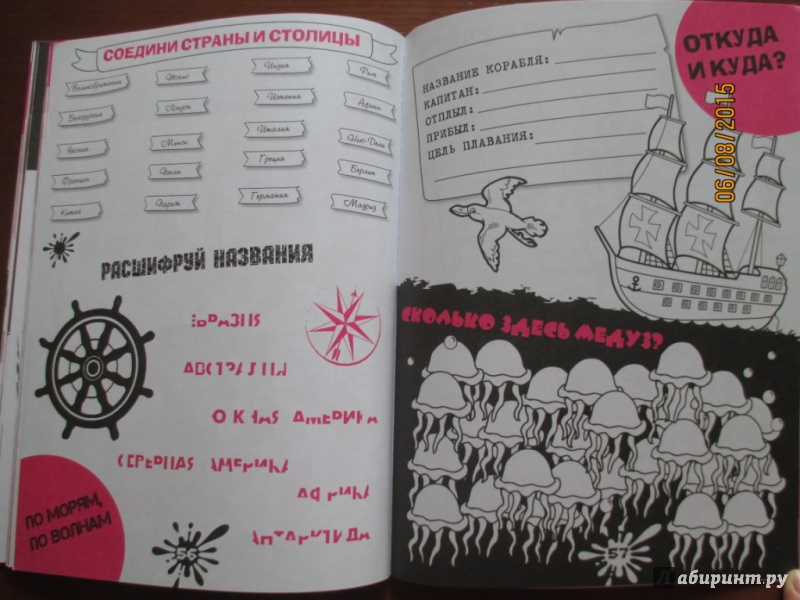 СОЕДИНИ СТРАНЫ И СТОЛИЦЫ
Великобритания
Токио
Индия
Рим
Белоруссия
Лондон
Испания
Афины
Япония
Минск
Италия
Нью-Дели
Франция
Пекин
Греция
Берлин
Китай
Париж
Германия
Мадрид
РАСШИФРУЙ НАЗВАНИЯ
ПО МОРЯМ,
ПО ВОЛНАМ
56
ОТКУДА
И КУДА?
НАЗВАНИЕ КОРАБЛЯ:
КАПИТАН:
ОТПЛЫЛ:
ПРИБЫЛ:
ЦЕЛЬ ПЛАВАНИЯ:
06/08/2015
СКОЛЬКО ЗДЕСЬ МЕДУЗ?
57
Лабиринт.ру